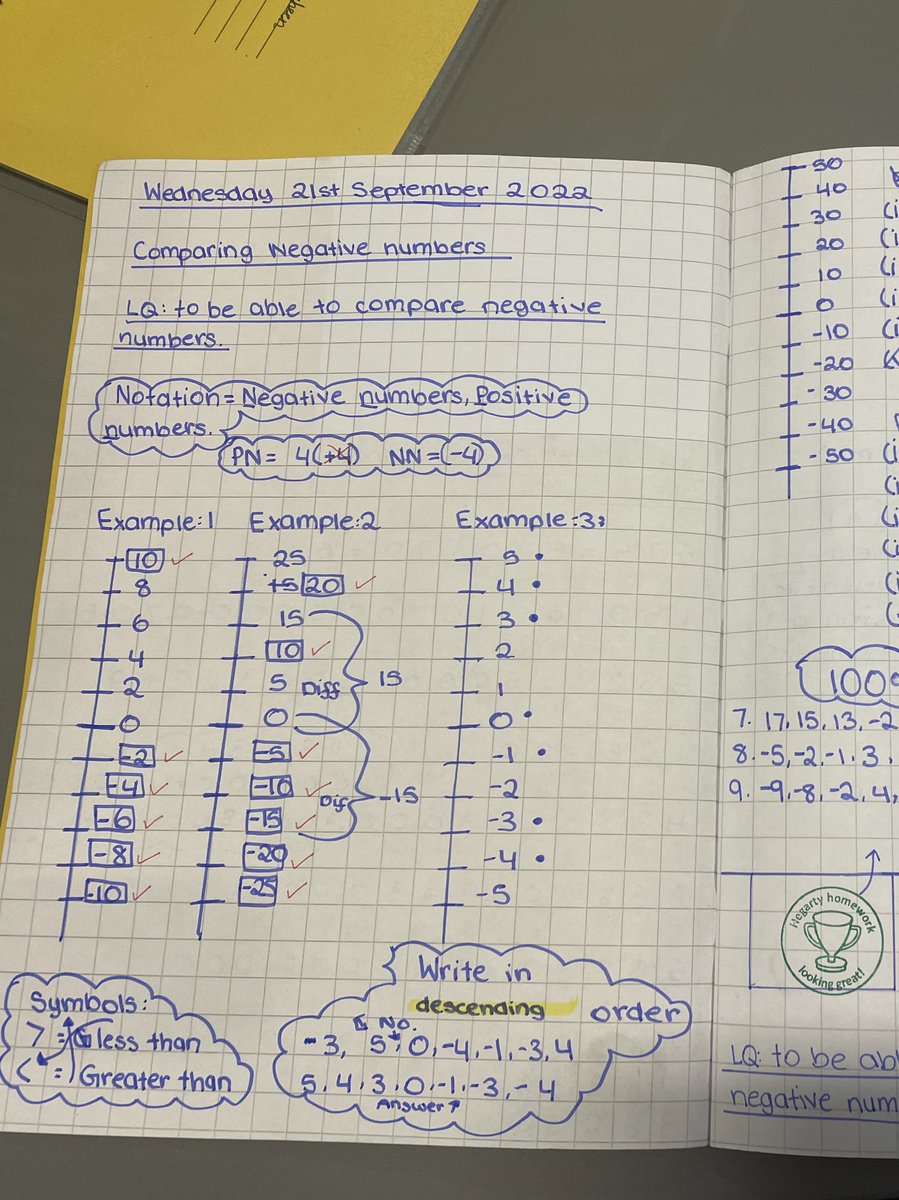 Wednesday 21st September 2022
Comparing Negative numbers
LQ: to be able to compare negative
numbers.
Notation = Negative numbers, Positive
numbers.
PN = 4(+4) NN = (-4)
Example:1
10
8
6
4
2
0
-2
-4
-6
-8
-10
Example:2
25
20
15
10
5
0
-5
-10
-15
-20
-25
Diff 15
-15
Example:3:
5
4
3
2
1
0
-1
-2
-3
-4
-5
Symbols:
> = less than
< = Greater than
Write in
descending order
No.
-3, 5, 0, -4, -1, -3, 4
5, 4, 3, 0, -1, -3, -4
Answer
50
40
30
20
10
0
-10
-20
-30
-40
-50
100
7. 17, 15, 13, -2
8. -5, -2, -1, 3,
9. -9, -8, -2, 4,
Hegarty homework
looking great!
LQ: to be
negative num